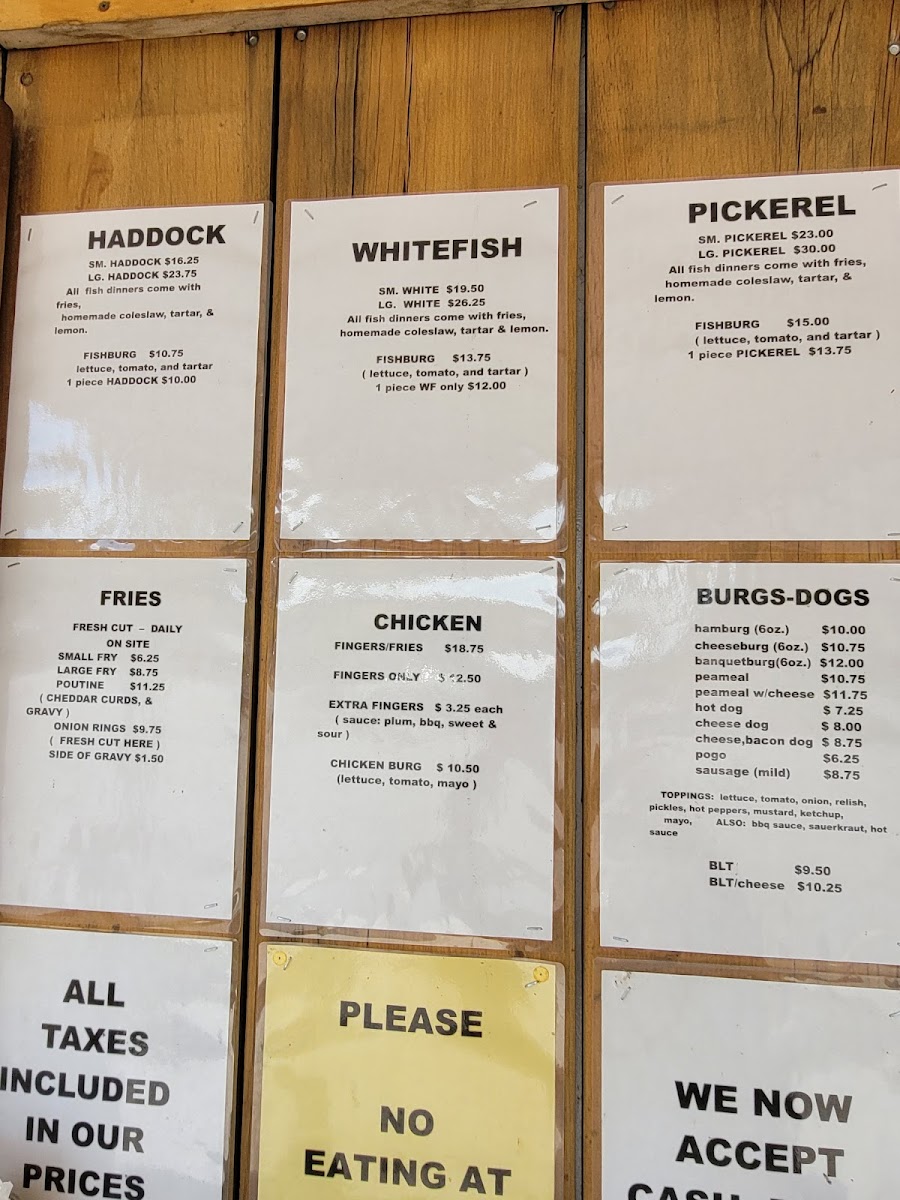 HADDOCK
SM. HADDOCK $16.25
LG. HADDOCK $23.75
All fish dinners come with
fries,
homemade coleslaw, tartar, &
lemon.
FISHBURG $10.75
lettuce, tomato, and tartar
1 piece HADDOCK $10.00
WHITEFISH
SM. WHITE $19.50
LG. WHITE $26.25
All fish dinners come with fries,
homemade coleslaw, tartar & lemon.
FISHBURG $13.75
( lettuce, tomato, and tartar )
1 piece WF only $12.00
PICKEREL
SM. PICKEREL $23.00
LG. PICKEREL $30.00
All fish dinners come with fries,
homemade coleslaw, tartar, &
lemon.
FISHBURG $15.00
( lettuce, tomato, and tartar )
1 piece PICKEREL $13.75
FRIES
FRESH CUT – DAILY
ON SITE
SMALL FRY $6.25
LARGE FRY $8.75
POUTINE $11.25
( CHEDDAR CURDS, &
GRAVY )
ONION RINGS $9.75
( FRESH CUT HERE )
SIDE OF GRAVY $1.50
CHICKEN
FINGERS/FRIES $18.75
FINGERS ONLY $ 12.50
EXTRA FINGERS $ 3.25 each
( sauce: plum, bbq, sweet &
sour )
CHICKEN BURG $ 10.50
(lettuce, tomato, mayo )
BURGS-DOGS
hamburg (6oz.) $10.00
cheeseburg (6oz.) $10.75
banquetburg(6oz.) $12.00
peameal $10.75
peameal w/cheese $11.75
hot dog $ 7.25
cheese dog $ 8.00
cheese,bacon dog $ 8.75
pogo $6.25
sausage (mild) $8.75
TOPPINGS: lettuce, tomato, onion, relish,
pickles, hot peppers, mustard, ketchup,
mayo, ALSO: bbq sauce, sauerkraut, hot
sauce
BLT $9.50
BLT/cheese $10.25
ALL
TAXES
INCLUDED
IN OUR
PRICES
PLEASE
NO
EATING AT
WE NOW
ACCEPT